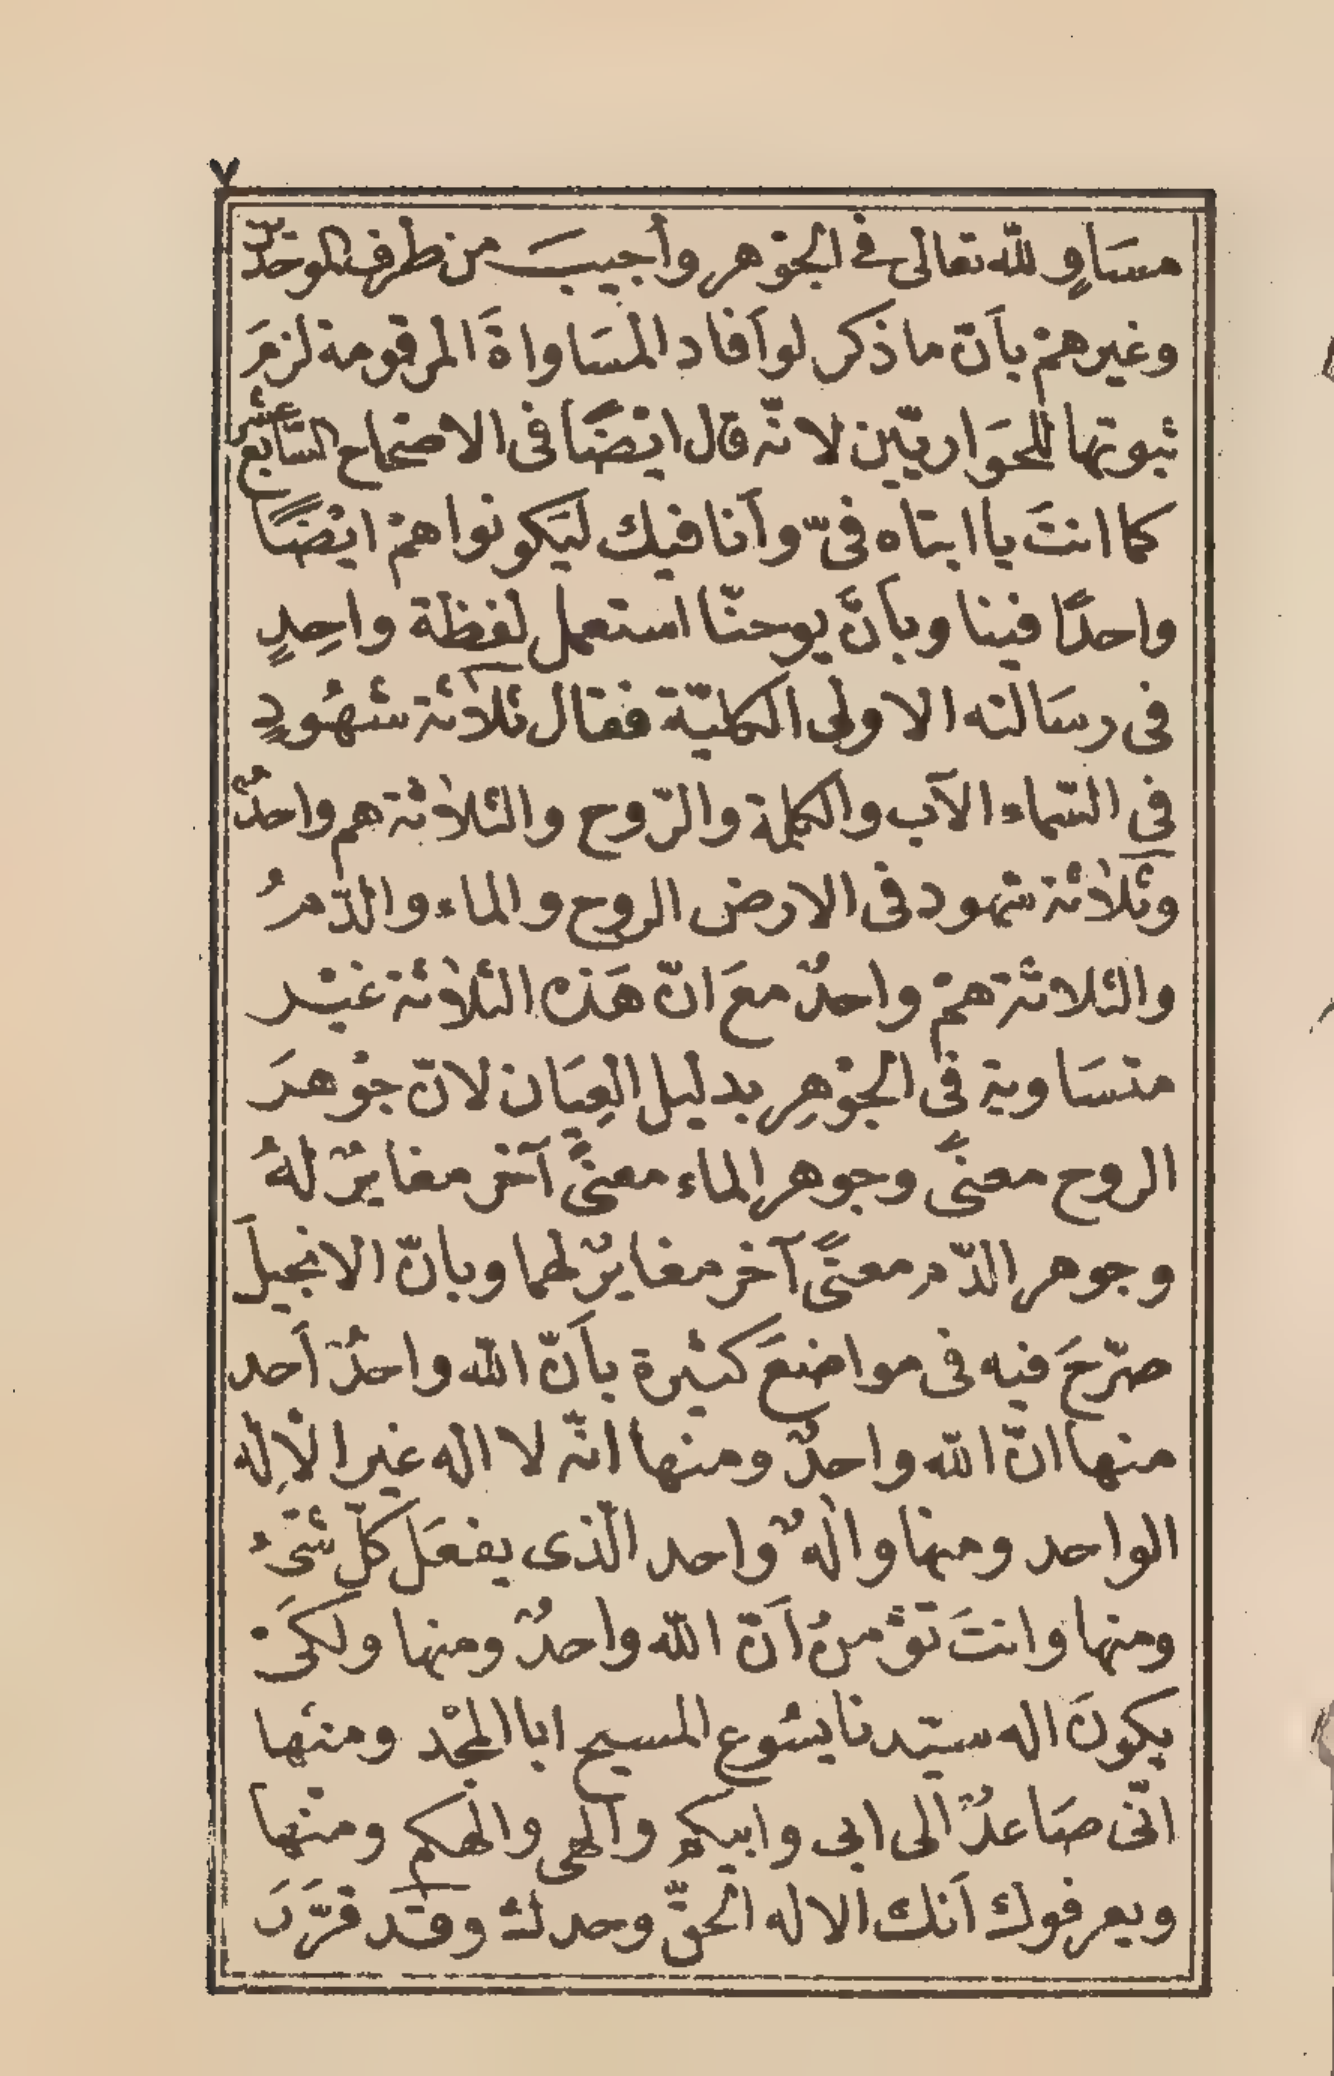 ٧
مسَاوٍ للّه تعالى فى الجوْهر وأجيبَ من طرف الموحدّين
وغيرهمْ بأنّ ما ذكر لو اَفاد المسَاواةَ المرقومة لزمَ
ثبوتها للحوَاريّين لانّه قال ايْضًا فى الاصحاح السّابع عشر
كما انتَ يا ابتاه فىّ وأنا فيك ليَكونوا همْ ايْضًا
واحدًا فينا وبأنَّ يوحنّا استعمل لفظة واحِدٍ
فى رسَالته الاولى الكليّة فقال ثلاثة شهُودٍ
في السّماء الآب والكلمة والرّوح والثلاثة هم واحدٌ
وثلاثة شهود فى الارض الروح والماء والدّمُ
والثلاثة همْ واحدٌ معَ انّ هَذه الثلاثة غيْر
متسَاوية فى الجوْهِر بدليل العِيَان لانّ جوْهرَ
الروح معنًى وجوهر الماء معنًى آخر مغايرٌ لهُ
وجوهر الدّم معنًى آخر مغايرٌ لهما وبانّ الانجيلَ
صرّحَ فيه فى مواضعَ كثيرة بأنّ اللّه واحدٌ أحد
منها انّ اللّه واحدٌ ومنها انّه لا اله غير الاْله
الواحد ومنها والٰهٌ واحد الّذى يفعَل كلّ شىْءُ
ومنها وانتَ تؤْمنُ اَنّ اللّه واحدٌ ومنها ولكىْ
يكونَ اله سيّدنا يسُوع المسيح ابا المجْد ومنها
انّى صَاعدٌ الى ابى وابيكم والهى والهكم ومنْها
ويعرفوك اَنك الاله الحقّ وحدك وقد قرَّرَ